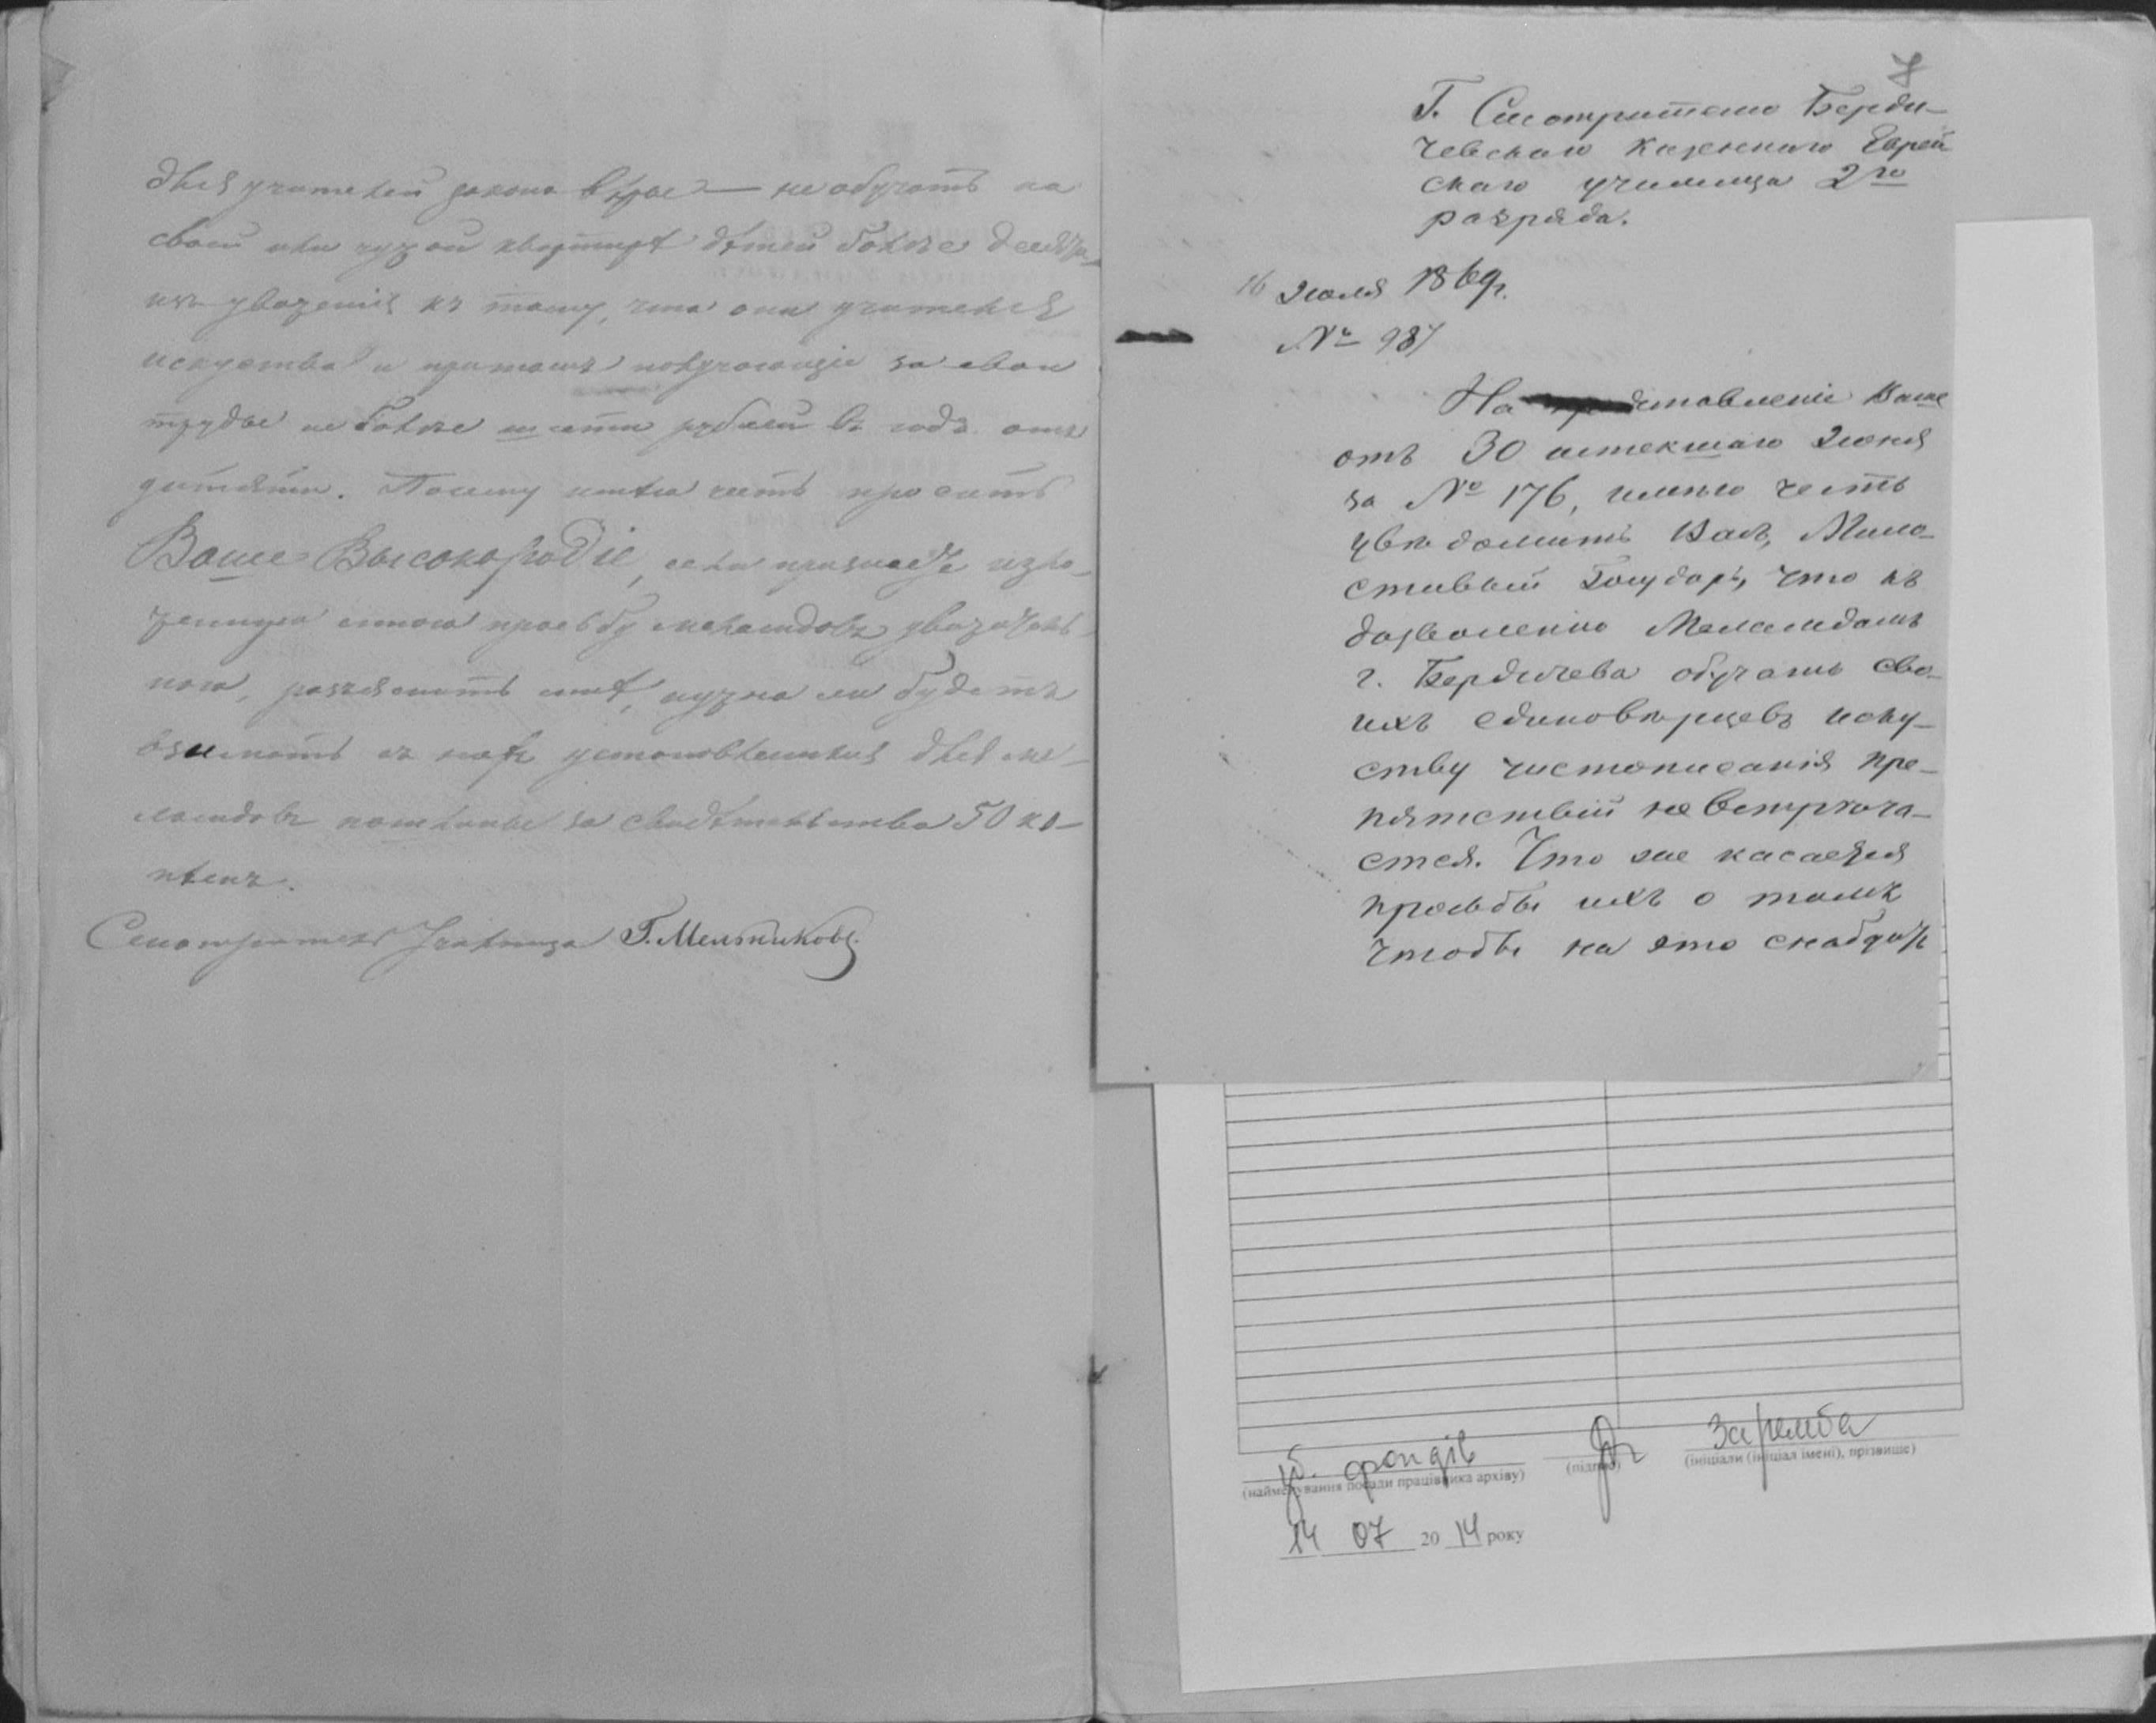 для учителей закона веры — не обучать на
своей или чужой квартире детей более десяти,
изъ уваженія къ тому, что они учителя
искуства и притомъ получающіе за свои
труды не более шести рублей въ годъ отъ
дитяти. Посему имѣю честь просить
Ваше Высокородіе, если признаете изло-
женную мною просьбу меламдовъ уважитель-
ною, разъяснить мнѣ, нужно ли будетъ
взимать съ нихъ установленныя для ме-
ламдовъ пошлины за свидѣтельства 50 ко-
пѣекъ.
Смотритель Училища Г. Мельниковъ.
7
Г. Смотрителю Берди-
чевскаго Казеннаго Еврей
скаго училища 2го
разряда.
16 Іюля 1869г.
№ 987
На представленіе Ваше
отъ 30 истекшаго Іюня
за № 176, имѣю честь
увѣдомить Васъ, Мило-
стивый Государь, что къ
дозволенію Меламдамъ
г. Бердичева обучать сво-
ихъ единовѣрцевъ иску-
ству чистописанія пре-
пятствій не встрѣча-
ется. Что же касается
просьбы ихъ о томъ
чтобы на это снабдить
зб. фондів
Заремба
(найменування посади працівника архіву)
(підпис)
(ініціали (ініціал імені), прізвище)
14 07 20 14 року